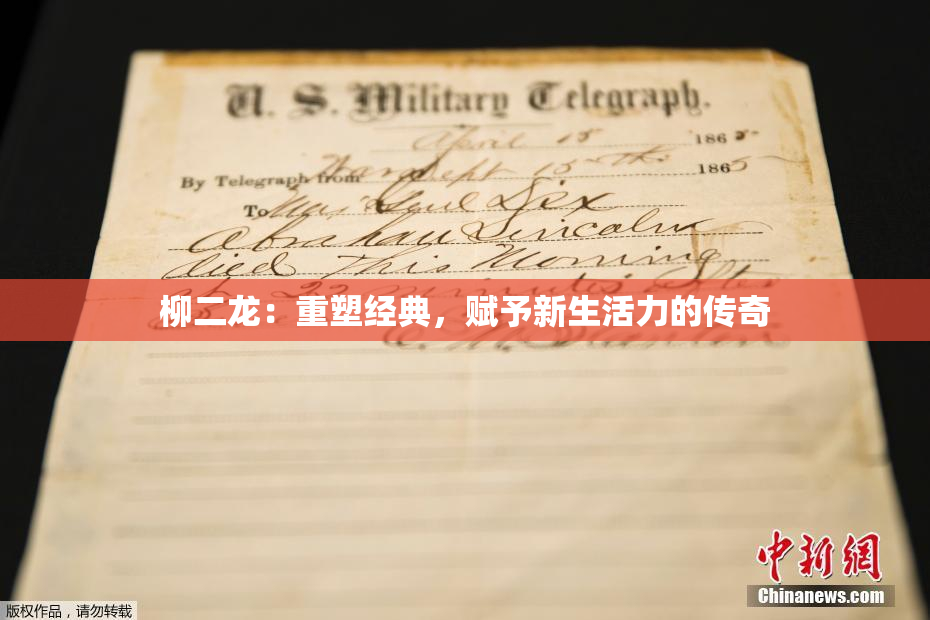 U. S. Military Telegraph.
April 15 1865
By Telegraph from War Dept 15th 1865
To Maj Genl Dix
Abraham Lincoln
died This Morning
at 22 minutes after
柳二龙：重塑经典，赋予新生活力的传奇
E. M. Stanton
中新网
Chinanews.com
版权作品，请勿转载